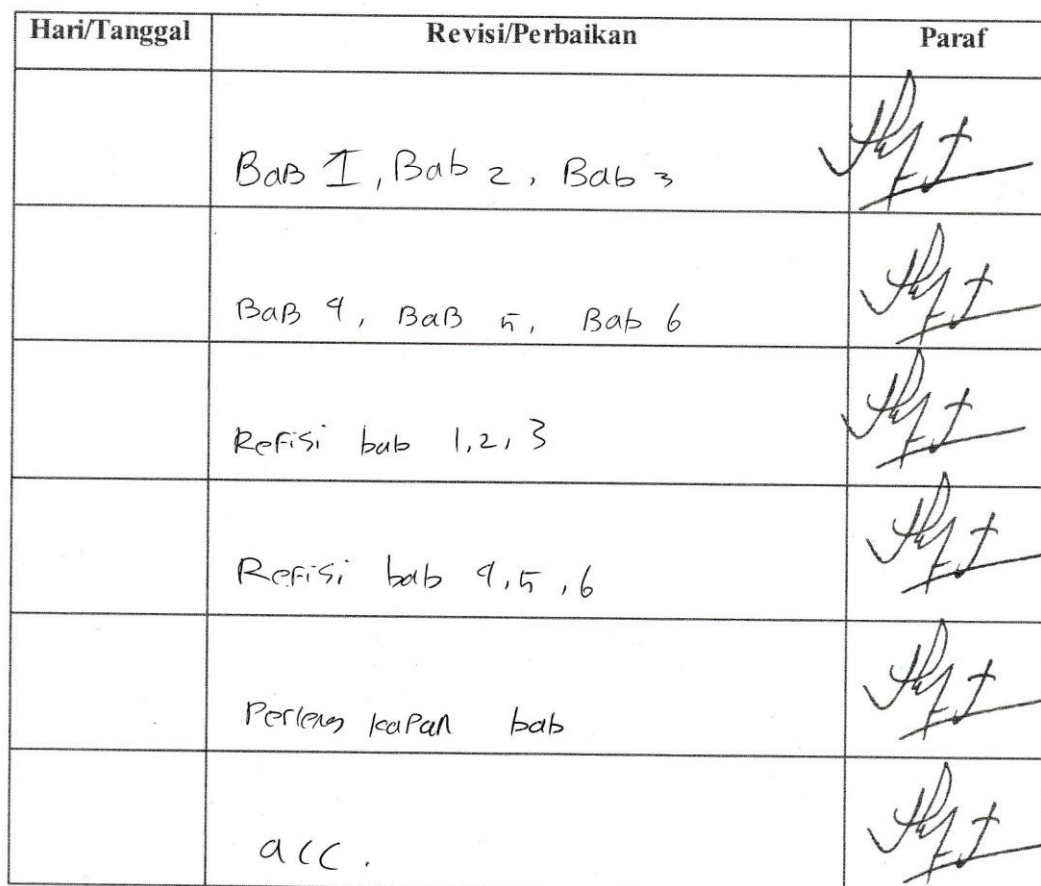 Hari/Tanggal Revisi/Perbaikan Paraf
BaB I, Bab 2, Bab 3
BaB 4, BaB 5, Bab 6
Refisi bab 1,2,3
Refisi bab 4,5,6
Perleng kapan bab
acc.